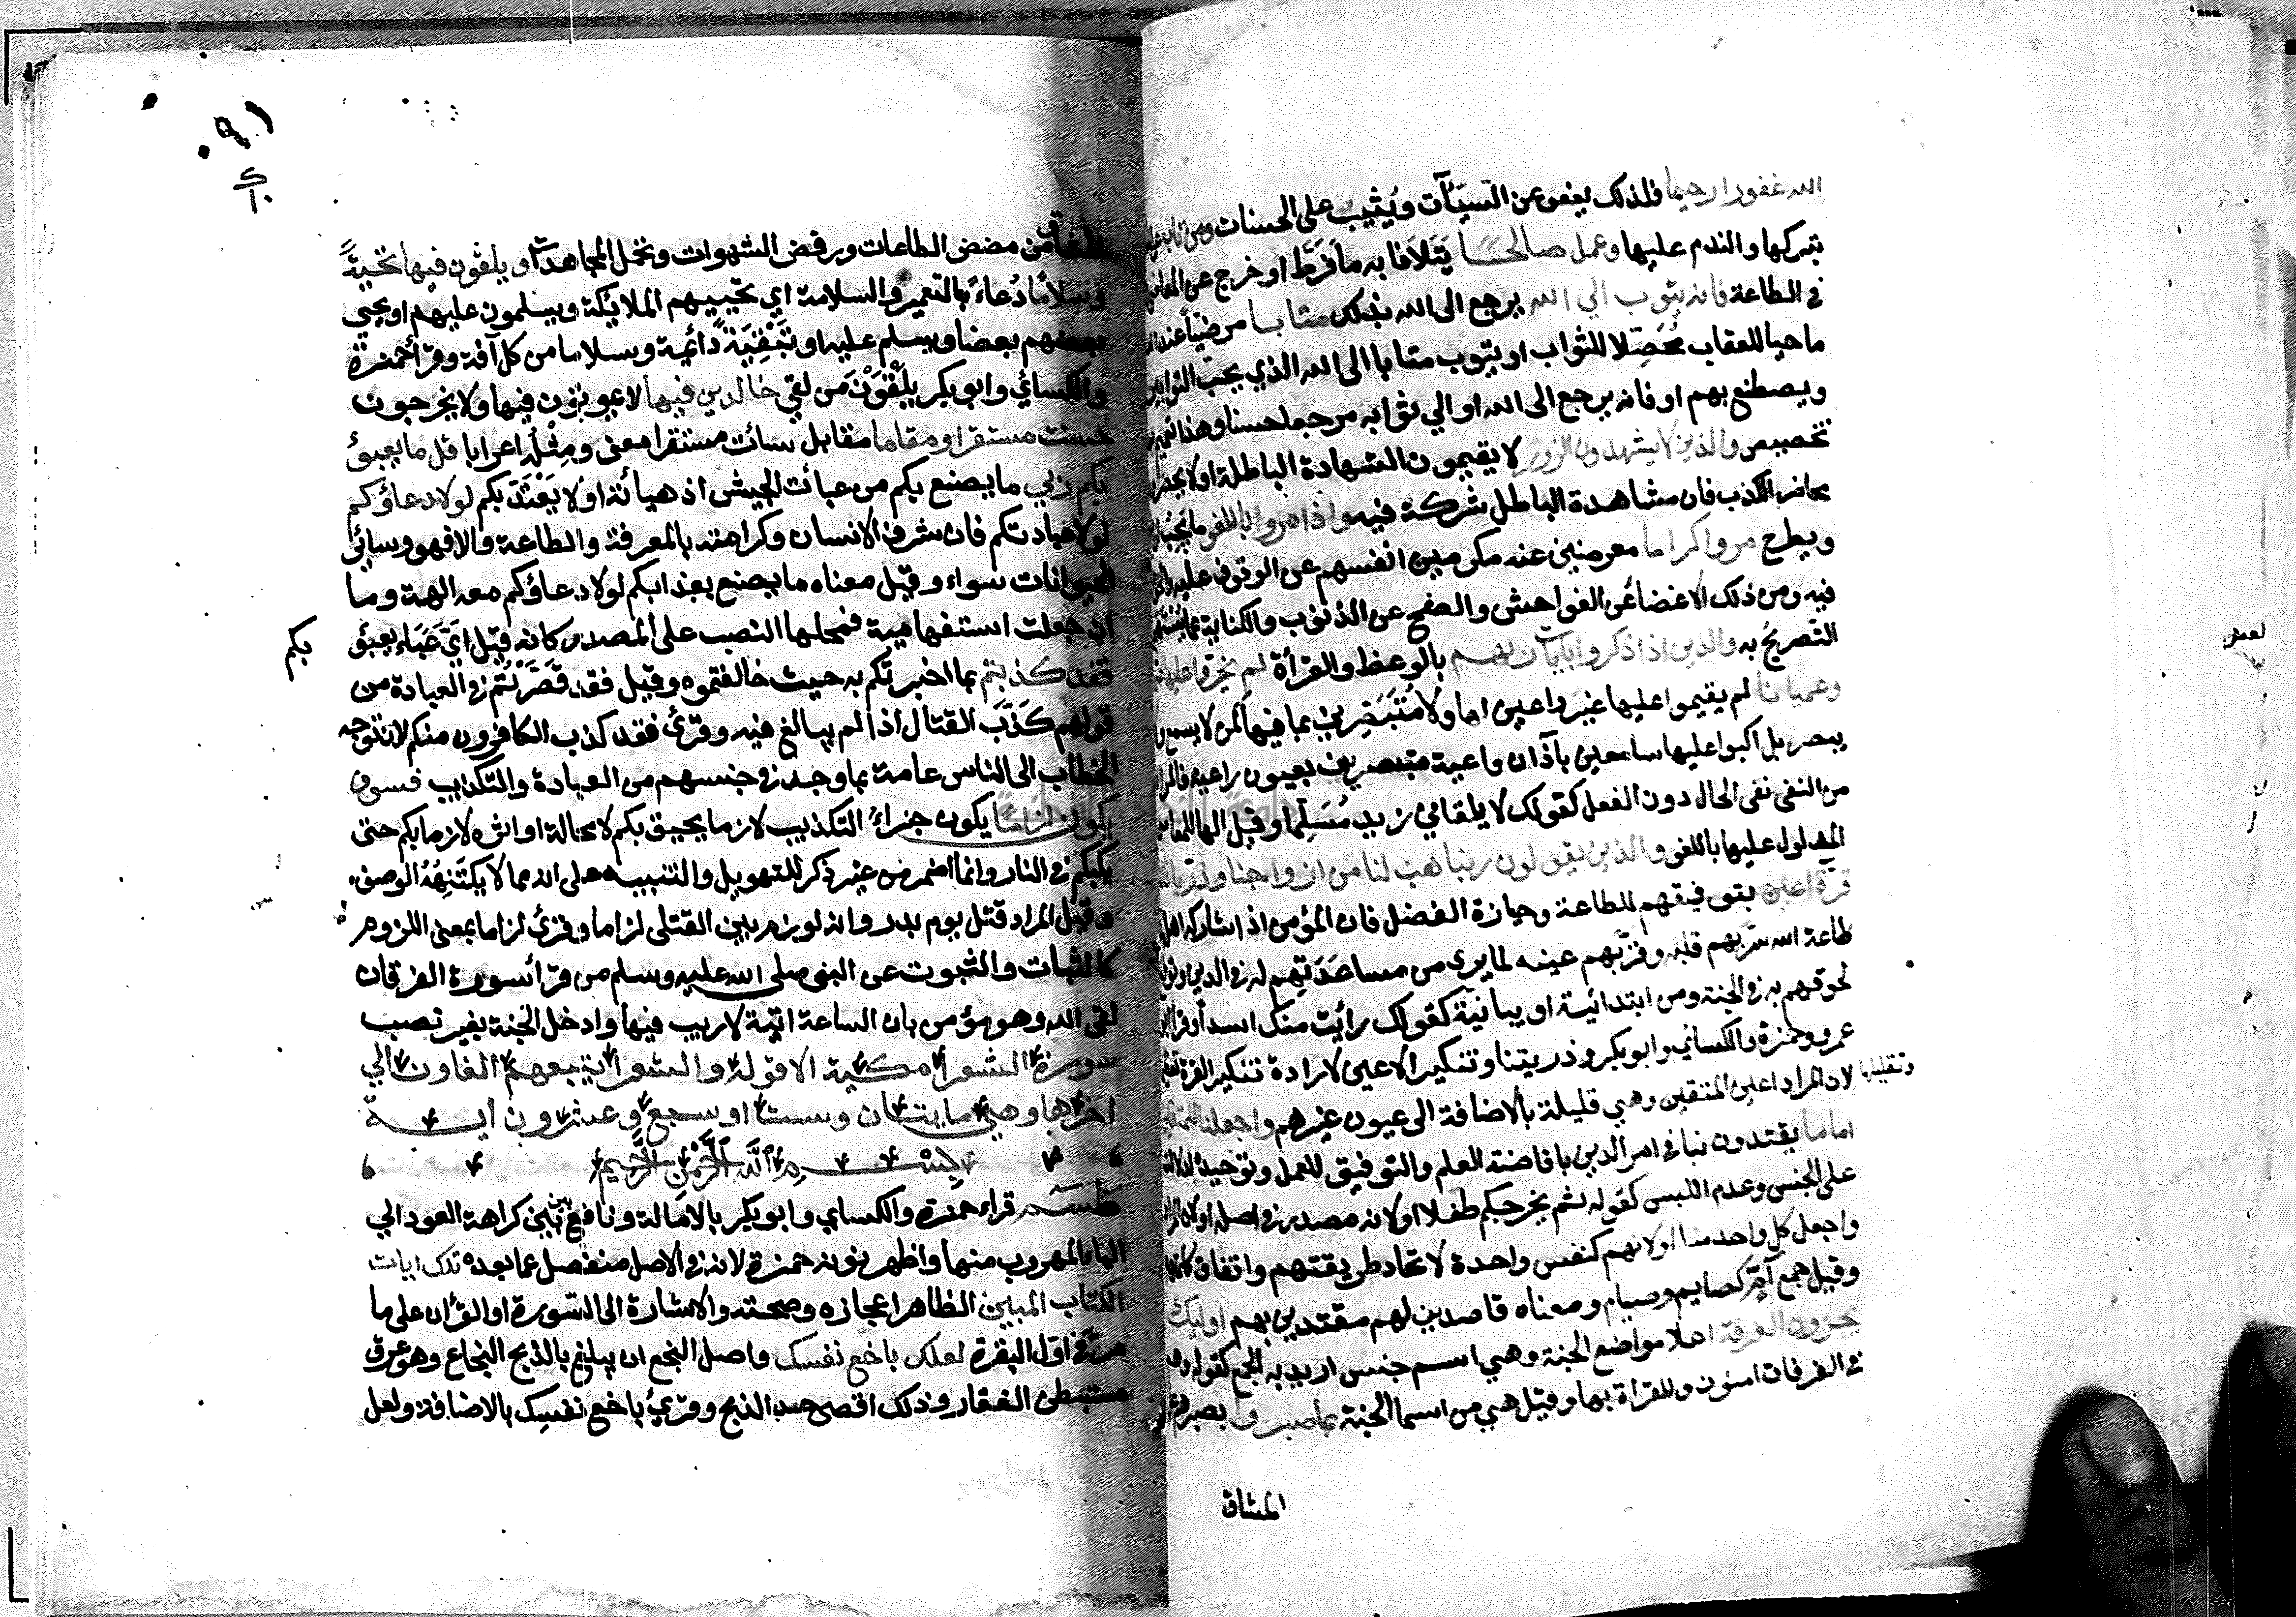 الله غفورا رحيما فلذلك يعفو عن السيّآت ويُثيب على الحسنات ومن تاب
بتركها والندم عليها وعمل صالحًا يَتَلَافا به ما فَرَّط او خرج عن المعاصي
في الطاعة فانه يتوب الي الله يرجع الى الله بذلك متابا مرضيًا عند
ماحيا للعقاب مُحَصِّلا للثواب او يتوب متابا الى الله الذي يحب التوابين
ويصطنع بهم او فانه يرجع الى الله او الي ثوابه مرجعا حسنا وهذا
تخصيص والذين لا يشهدون الزور لا يقيمون الشهادة الباطلة او لا
محاضر الكذب فان مشاهدة الباطل شركة فيه واذا مروا باللغو ما
ويطرح مروا كراما معرضين عنه مكرمين انفسهم عن الوقوف عليه
فيه ومن ذلك الاغضا عن الفواحش والصفح عن الذنوب والكناية عما
التصريحُ به والذين اذا ذكروا بايات ربهم بالوعظ والقرأة لم يخروا عليها
وعميانا لم يقيموا عليها غير واعين لها ولا مُتَبَصِّرين بما فيها كمن لا يسمع
يبصر بل اكبوا عليها سامعين بآذان واعية متبصرين بعيون راعية
من النفى نفى الحال دون الفعل كقولك لا يلقاني زيد مُسَلِّما وقيل الها
المدلول عليها باللغو والذين يقولون ربنا هب لنا من ازواجنا وذرياتنا
قرّة اعين بتوفيقهم للطاعة وحيازة الفضل فان المؤمن اذا شاركه
طاعة الله سرّبهم قلبه وقرّبهم عينه لما يرى من مساعَدَتِهِم له في الدين
لحوقهم به في الجنة ومن ابتدائية او بيانية كقولك رائيت منك اسدا
عمرو وحمزة والكساني وابوبكر وذريتنا وتنكير الاعين لارادة تنكير القرة
وتقليلها
لان المراد اعين المتقين وهي قليلة بالاضافة الى عيون غيرهم واجعلنا للمتقين
اماما يقتدون بنا في امر الدين بافاضة العلم والتوفيق للعمل وتوحيده
على الجنس وعدم اللبس كقوله ثم يخرجكم طفلا او لانه مصدر في اصله
واجعل كل واحد منا او لانهم كنفس واحدة لاتحاد طريقتهم واتفاق
وقيل جمع آمّ كصايم وصيام ومعناه قاصدين لهم مقتدين بهم اوليك
يجزون الغرفة اعلا مواضع الجنة وهي اسم جنس اريد به الجمع كقوله
في الغرفات امنون وللقراة بها وقيل هي من اسما الجنة بما صبروا بصبرهم
المشاق
المشاق من مضض الطاعات ورفض الشهوات وتحمل المجاهدات ويلقون فيها تحيةً
وسلامًا دُعاءً بالتعمير والسلامة اي تحييهم الملائكة ويسلمون عليهم او يحيي
بعضهم بعضا ويسلم عليه او تَبْقِيَةً دائمية وسلاما من كل آفة وقرأ حمزة
والكسائي وابوبكر يَلْقَوْنَ من لقي خالدين فيها لا يموتون فيها ولا يخرجون
حسنت مستقرا ومقاما مقابل سائت مستقرا معنى ومِثْلُه اعرابا قل ما يعبؤ
بكم ربي ما يصنع بكم من عبائت الجيش اذ هيأته او لا يَعْتَدَّ بكم لولا دعاؤكم
لولا عبادتكم فان شرف الانسان وكرامته بالمعرفة والطاعة والا فهو وسائر
الحيوانات سواء وقيل معناه ما يصنع بعذابكم لولا دعاؤكم معه الهة وما
ان جعلت استفهامية فمحلها النصب على المصدر كانه قيل ايّ عَبَاء يعبؤ
بكم
فقد كذبتم بما اخبرتكم به حيث خالفتموه وقيل فقد قَصَّرْتُم في العبادة من
قولهم كَذَّبَ القتال اذا لم يبالغ فيه وقرئ فقد كذب الكافرون منكم لا نتوجه
الخطاب الى الناس عامة بما وجد في جنسهم من العبادة والتكذيب فسوف
يكون لزامًا يكون جزاءُ التكذيب لازما يحيق بكم لا محالة او اثره لازما بكم حتى
يكبكم في النار وانما اضمر من غير ذكر للتهويل والتنبيه على انه مما لا يكتَنِهُهُ الوصف
وقيل المراد قتل يوم بدر وانه لوزم بين القتلى لزاما وقرئ لزاما بمعنى اللزوم
كالثبات والثبوت عن النبى صلى الله عليه وسلم من قرأ سورة الفرقان
لقى الله وهو مؤمن بان الساعة اتية لا ريب فيها وادخل الجنة بغير نصب
سورة الشعرا مكية الا قوله والشعرا يتبعهم الغاون الي
اخرها وهي مايتان وست او سبع وعشرون اية
بسم اللّه الرّحمن الرّحيم
طسم قراء حمزة والكساي وابوبكر بالامالة ونافع بين بين كراهة العود الي
الياء المهروب منها واظهر نونه حمزة لانه في الاصل منفصل عما بعده تلك ايات
الكتاب المبين الظاهر اعجازه وصحته والاشارة الى السورة او القرأن على ما
مرّ في اول البقرة لعلك باخع نفسك واصل البخع ان يبلغ بالذبح البخاع وهو عرق
مستبطن الفقار وذلك اقصى حد الذبح وقرئ باخع نفسِك بالاضافة ولعل